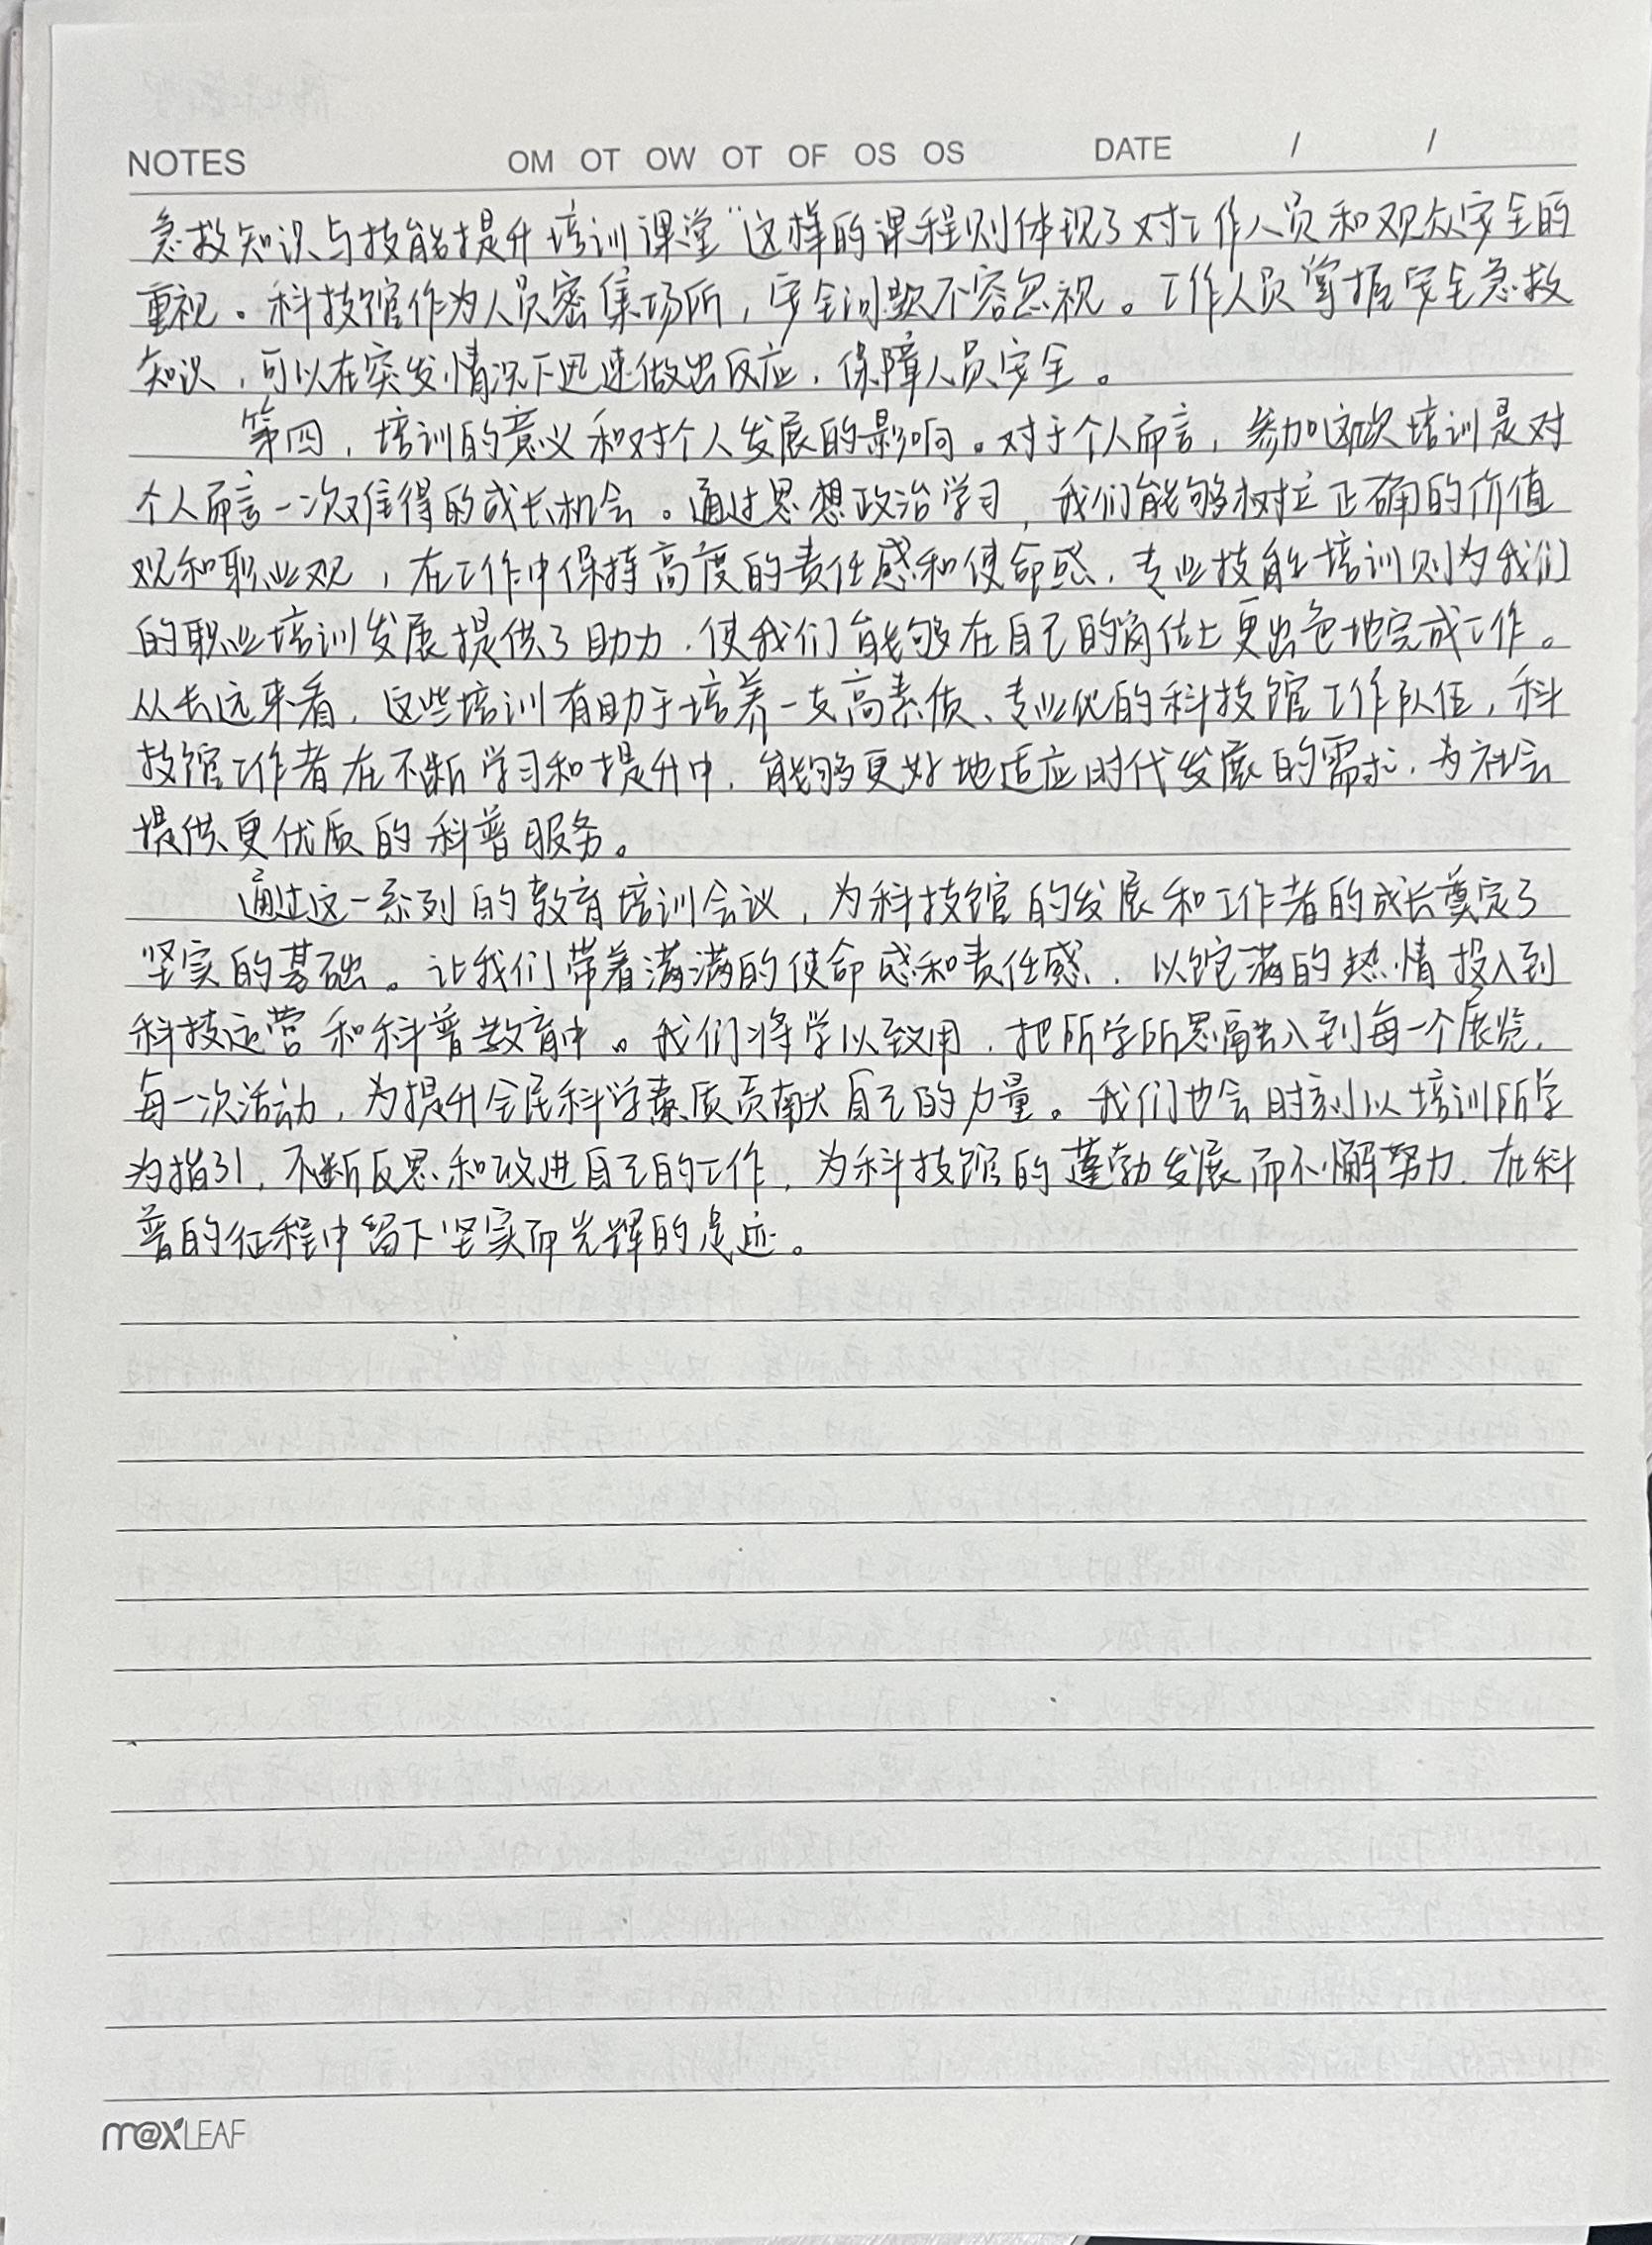 NOTES OM OT OW OT OF OS OS DATE / /
急救知识与技能提升培训课堂"这样的课程则体现了对工作人员和观众安全的
重视。科技馆作为人员密集场所，安全问题不容忽视。工作人员掌握安全急救
知识，可以在突发情况下迅速做出反应，保障人员安全。
第四，培训的意义和对个人发展的影响。对于个人而言，参加这次培训是对
个人而言一次难得的成长机会。通过思想政治学习，我们能够树立正确的价值
观和职业观，在工作中保持高度的责任感和使命感，专业技能培训则为我们
的职业培训发展提供了助力，使我们能够在自己的岗位上更出色地完成工作。
从长远来看，这些培训有助于培养一支高素质、专业化的科技馆工作队伍，科
技馆工作者在不断学习和提升中，能够更好地适应时代发展的需求，为社会
提供更优质的科普服务。
通过这一系列的教育培训会议，为科技馆的发展和工作者的成长奠定了
坚实的基础。让我们带着满满的使命感和责任感，以饱满的热情投入到
科技运营和科普教育中。我们将学以致用，把所学所思融入到每一个展览，
每一次活动，为提升全民科学素质贡献自己的力量。我们也会时刻以培训所学
为指引，不断反思和改进自己的工作，为科技馆的蓬勃发展而不懈努力，在科
普的征程中留下坚实而光辉的足迹。
m@xLEAF